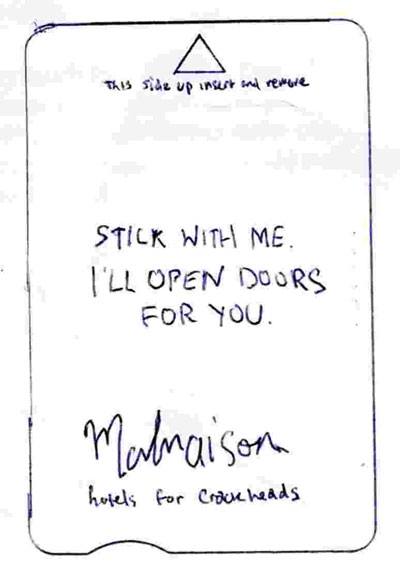 This side up insert and remove
STICK WITH ME.
I'LL OPEN DOORS
FOR YOU.
Malmaison
hotels for Crackheads